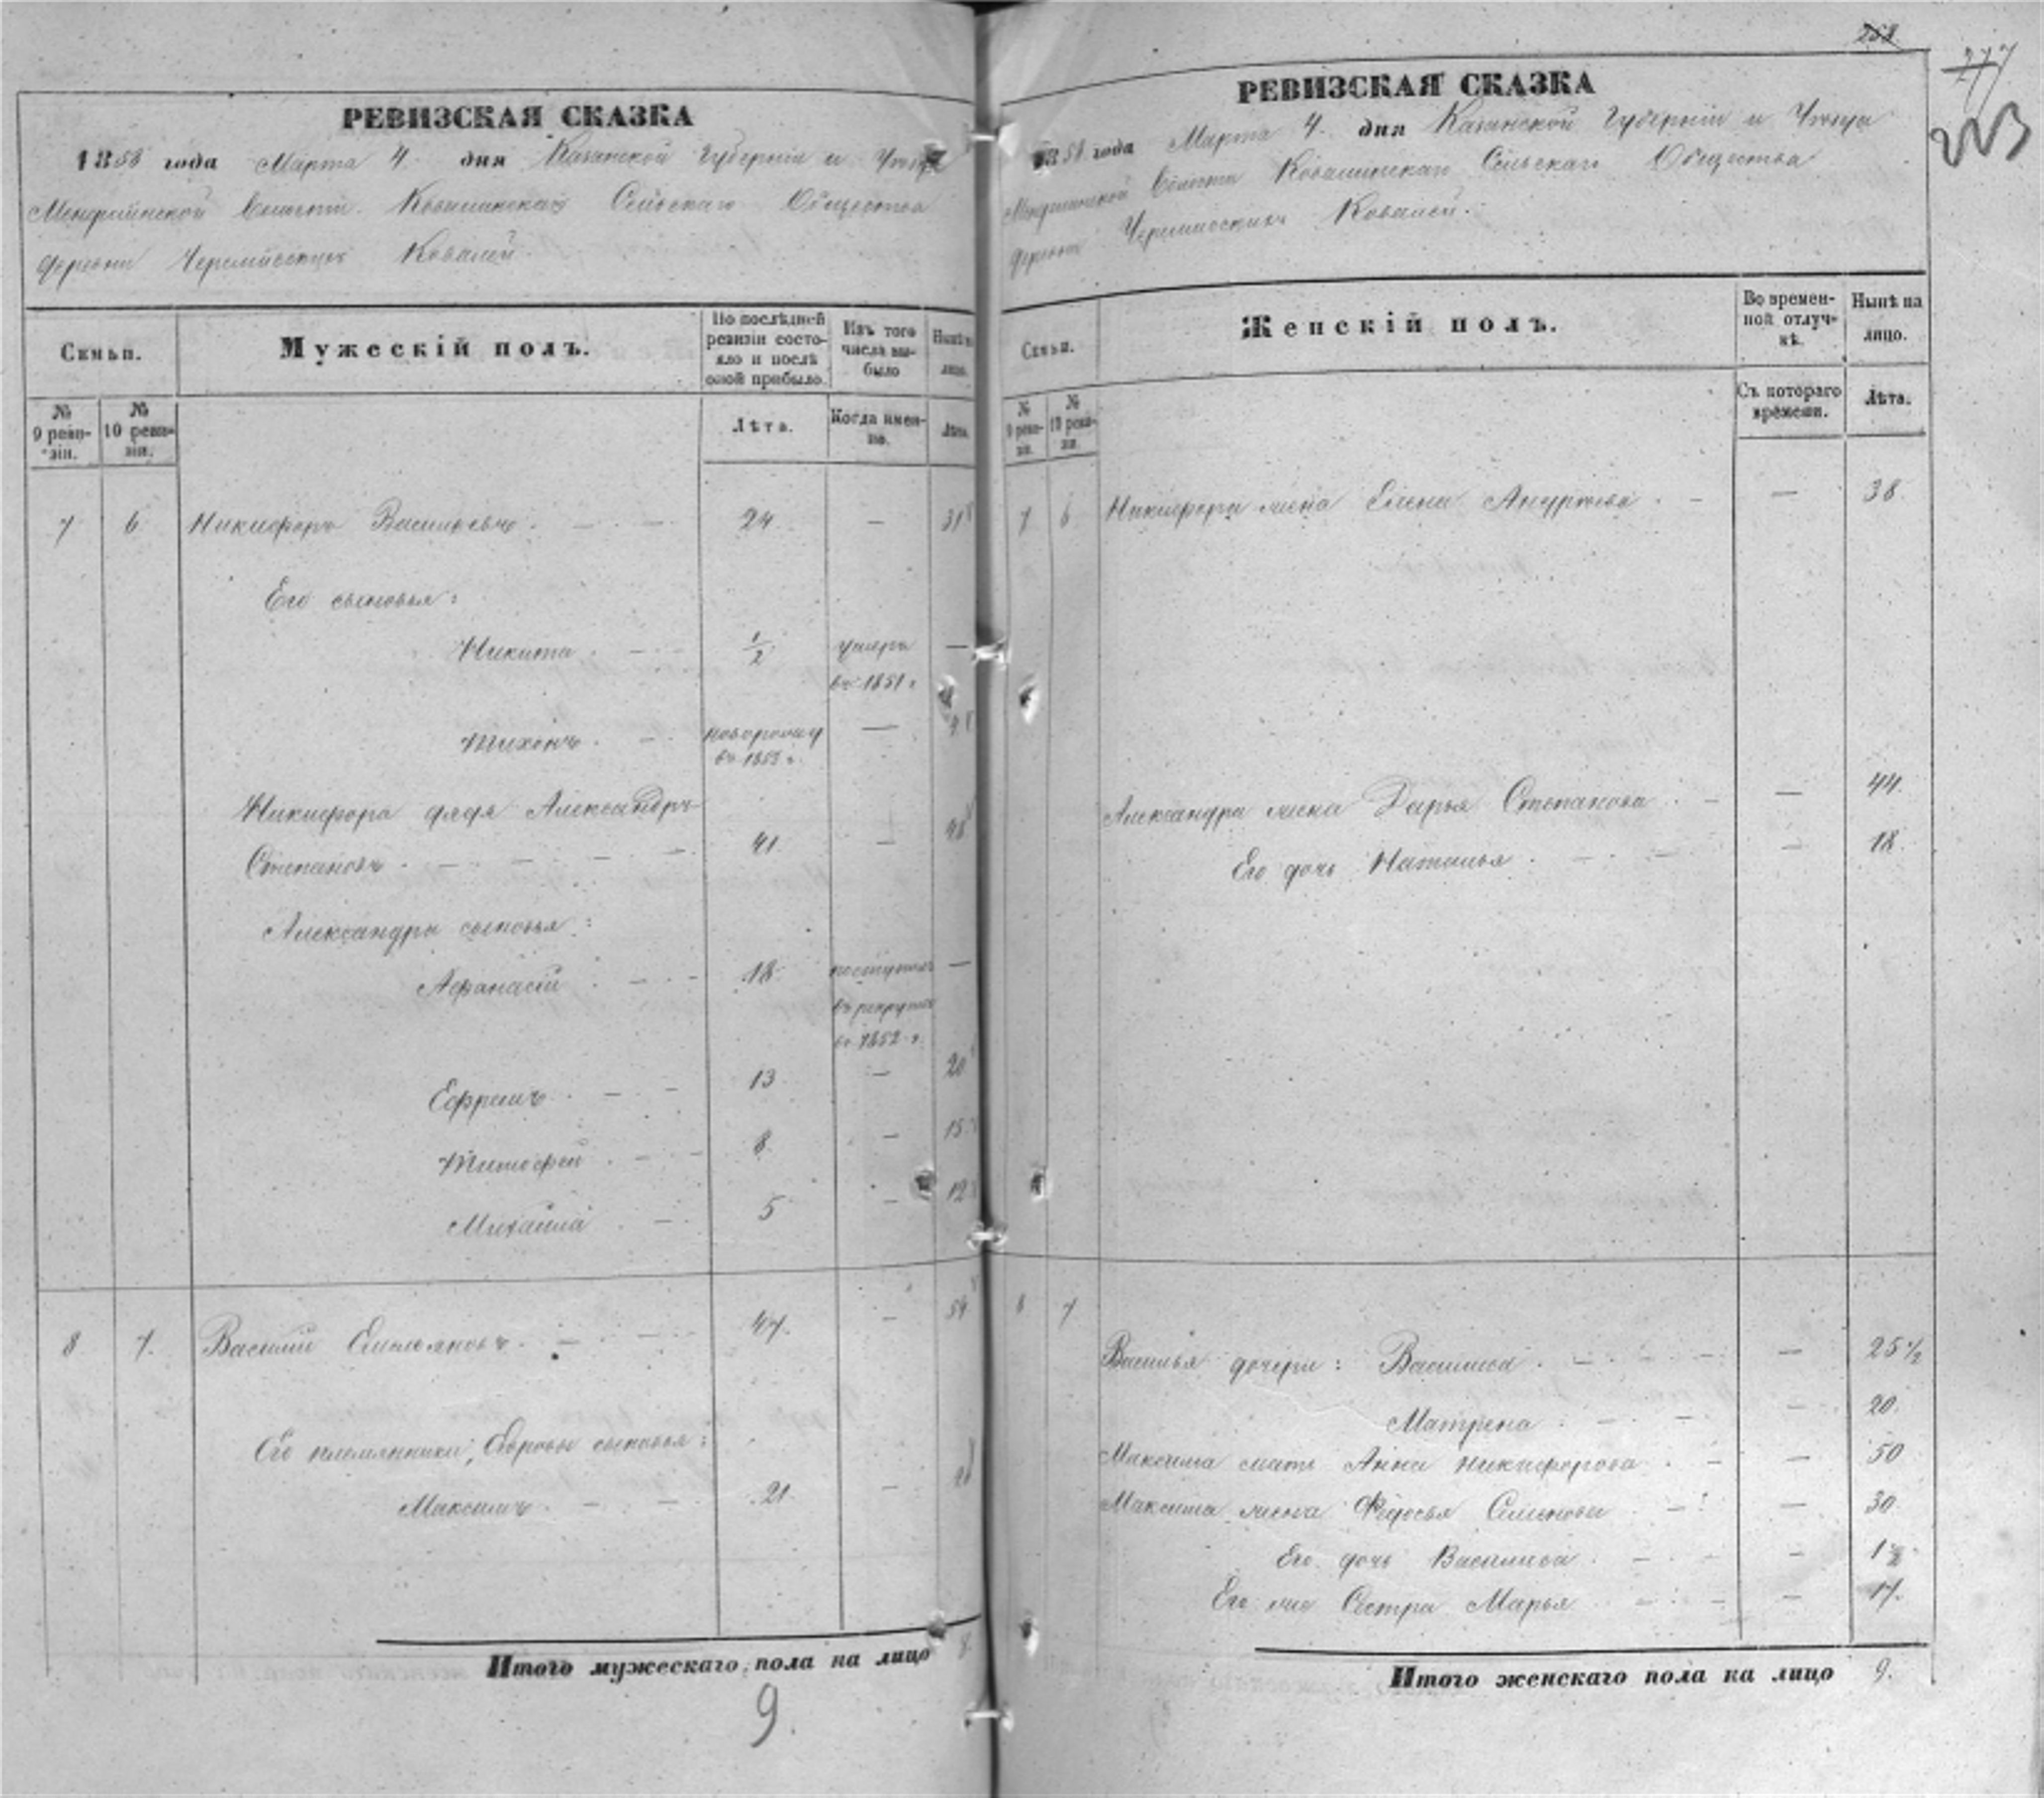 РЕВИЗСКАЯ СКАЗКА
1858 года Марта 4 дня Казанской Губерніи и Уѣзда
Волости Ковалинскаго Сельскаго Общества
деревни Черемисскихъ Ковалей
Семьи.
Мужескій полъ.
По послѣдней ревизіи состояло и послѣ оной прибыло.
Изъ того числа выбыло
Нынѣ на лицо.
№ 9 ревизіи.
№ 10 ревизіи.
Лѣта.
Когда именно.
Лѣта.
7 6 Никифоръ Васильевъ 24 — 31
Его сыновья:
Никита 1/2 умеръ —
въ 1851 г
Тихонъ новорожд —
въ 1853 г.
Никифора дядя Александръ
Степановъ 41 — 48
Александра сыновья:
Афанасій 18 поступилъ —
въ рекруты
въ 1852 г.
Ефремъ 13 — 20
Тимофей 8 — 15
Михайла 5 — 12
8 7 Василій Емельяновъ 47 — 54
Его племянники, сыновья:
Максимъ 21 — 28
Итого мужескаго пола на лицо
9.
258
277
223
РЕВИЗСКАЯ СКАЗКА
1858 года Марта 4 дня Казанской Губерніи и Уѣзда
Волости Ковалинскаго Сельскаго Общества
деревни Черемисскихъ Ковалей.
Семьи.
Женскій полъ.
Во временной отлучкѣ.
Нынѣ на лицо.
№ 9 ревизіи.
№ 10 ревизіи.
Съ котораго времени.
Лѣта.
7 6 Никифора жена Елена — 38
Александра жена Дарья Степанова — 44
Его дочь Наталья — 18
8 7
Василья дочери: Василиса — 25 1/2
Матрена — 20
Максима мать Анна Никифорова — 50
Максима жена Федосья Семенова — 30
Его дочь Василиса —
Его же Сестра Марья — 17.
Итого женскаго пола на лицо 9.